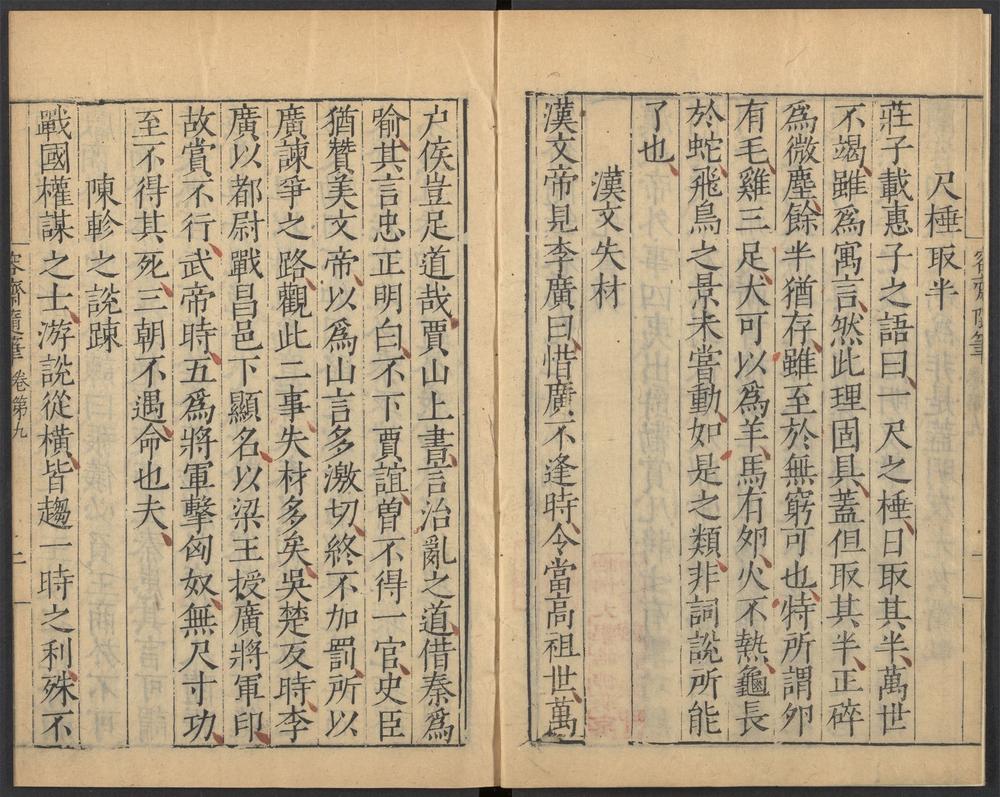 尺棰取半
莊子載惠子之語曰一尺之棰日取其半萬世
不竭雖為寓言然此理固具蓋但取其半正碎
為微塵餘半猶存雖至於無窮可也特所謂卵
有毛雞三足犬可以為羊馬有卵火不熱龜長
於蛇飛鳥之景未嘗動如是之類非詞說所能
了也
漢文失材
漢文帝見李廣曰惜廣不逢時令當高祖世萬
户侯豈足道哉賈山上書言治亂之道借秦為
喻其言忠正明白不下賈誼曾不得一官史臣
猶贊美文帝以為山言多激切終不加罰所以
廣諫爭之路觀此二事失材多矣吳楚反時李
廣以都尉戰昌邑下顯名以梁王授廣將軍印
故賞不行武帝時五為將軍擊匈奴無尺寸功
至不得其死三朝不遇命也夫
陳軫之說踈
戰國權謀之士游說從橫皆趨一時之利殊不
容齋隨筆 卷第九